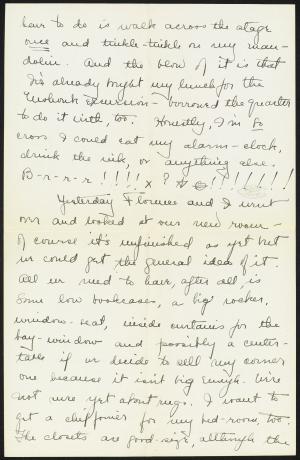 have to do is walk across the stage
once and tinkle-tinkle on my man-
dolin. And the blow of it is that
I'd already bought my lunch for the
Mohonk Excursion - borrowed the quarter
to do it with, too. Honestly, I'm so
cross I could eat my alarm-clock,
drink the ink, or anything else.
B-r-r-r !!!! x ? * !!!!!!!
Yesterday Florence and I went
over and looked at our new room -
of course it's unfinished as yet but
we could get the general idea of it.
All we need to have, after all, is
some low bookcases, a big rocker,
window-seat, inside curtains for the
bay-window and possibly a center-
table if we decide to sell my corner
one because it isn't big enough. We're
not sure yet about rugs. I want to
get a chiffonier for my bed-room, too.
The closets are good-size, although the